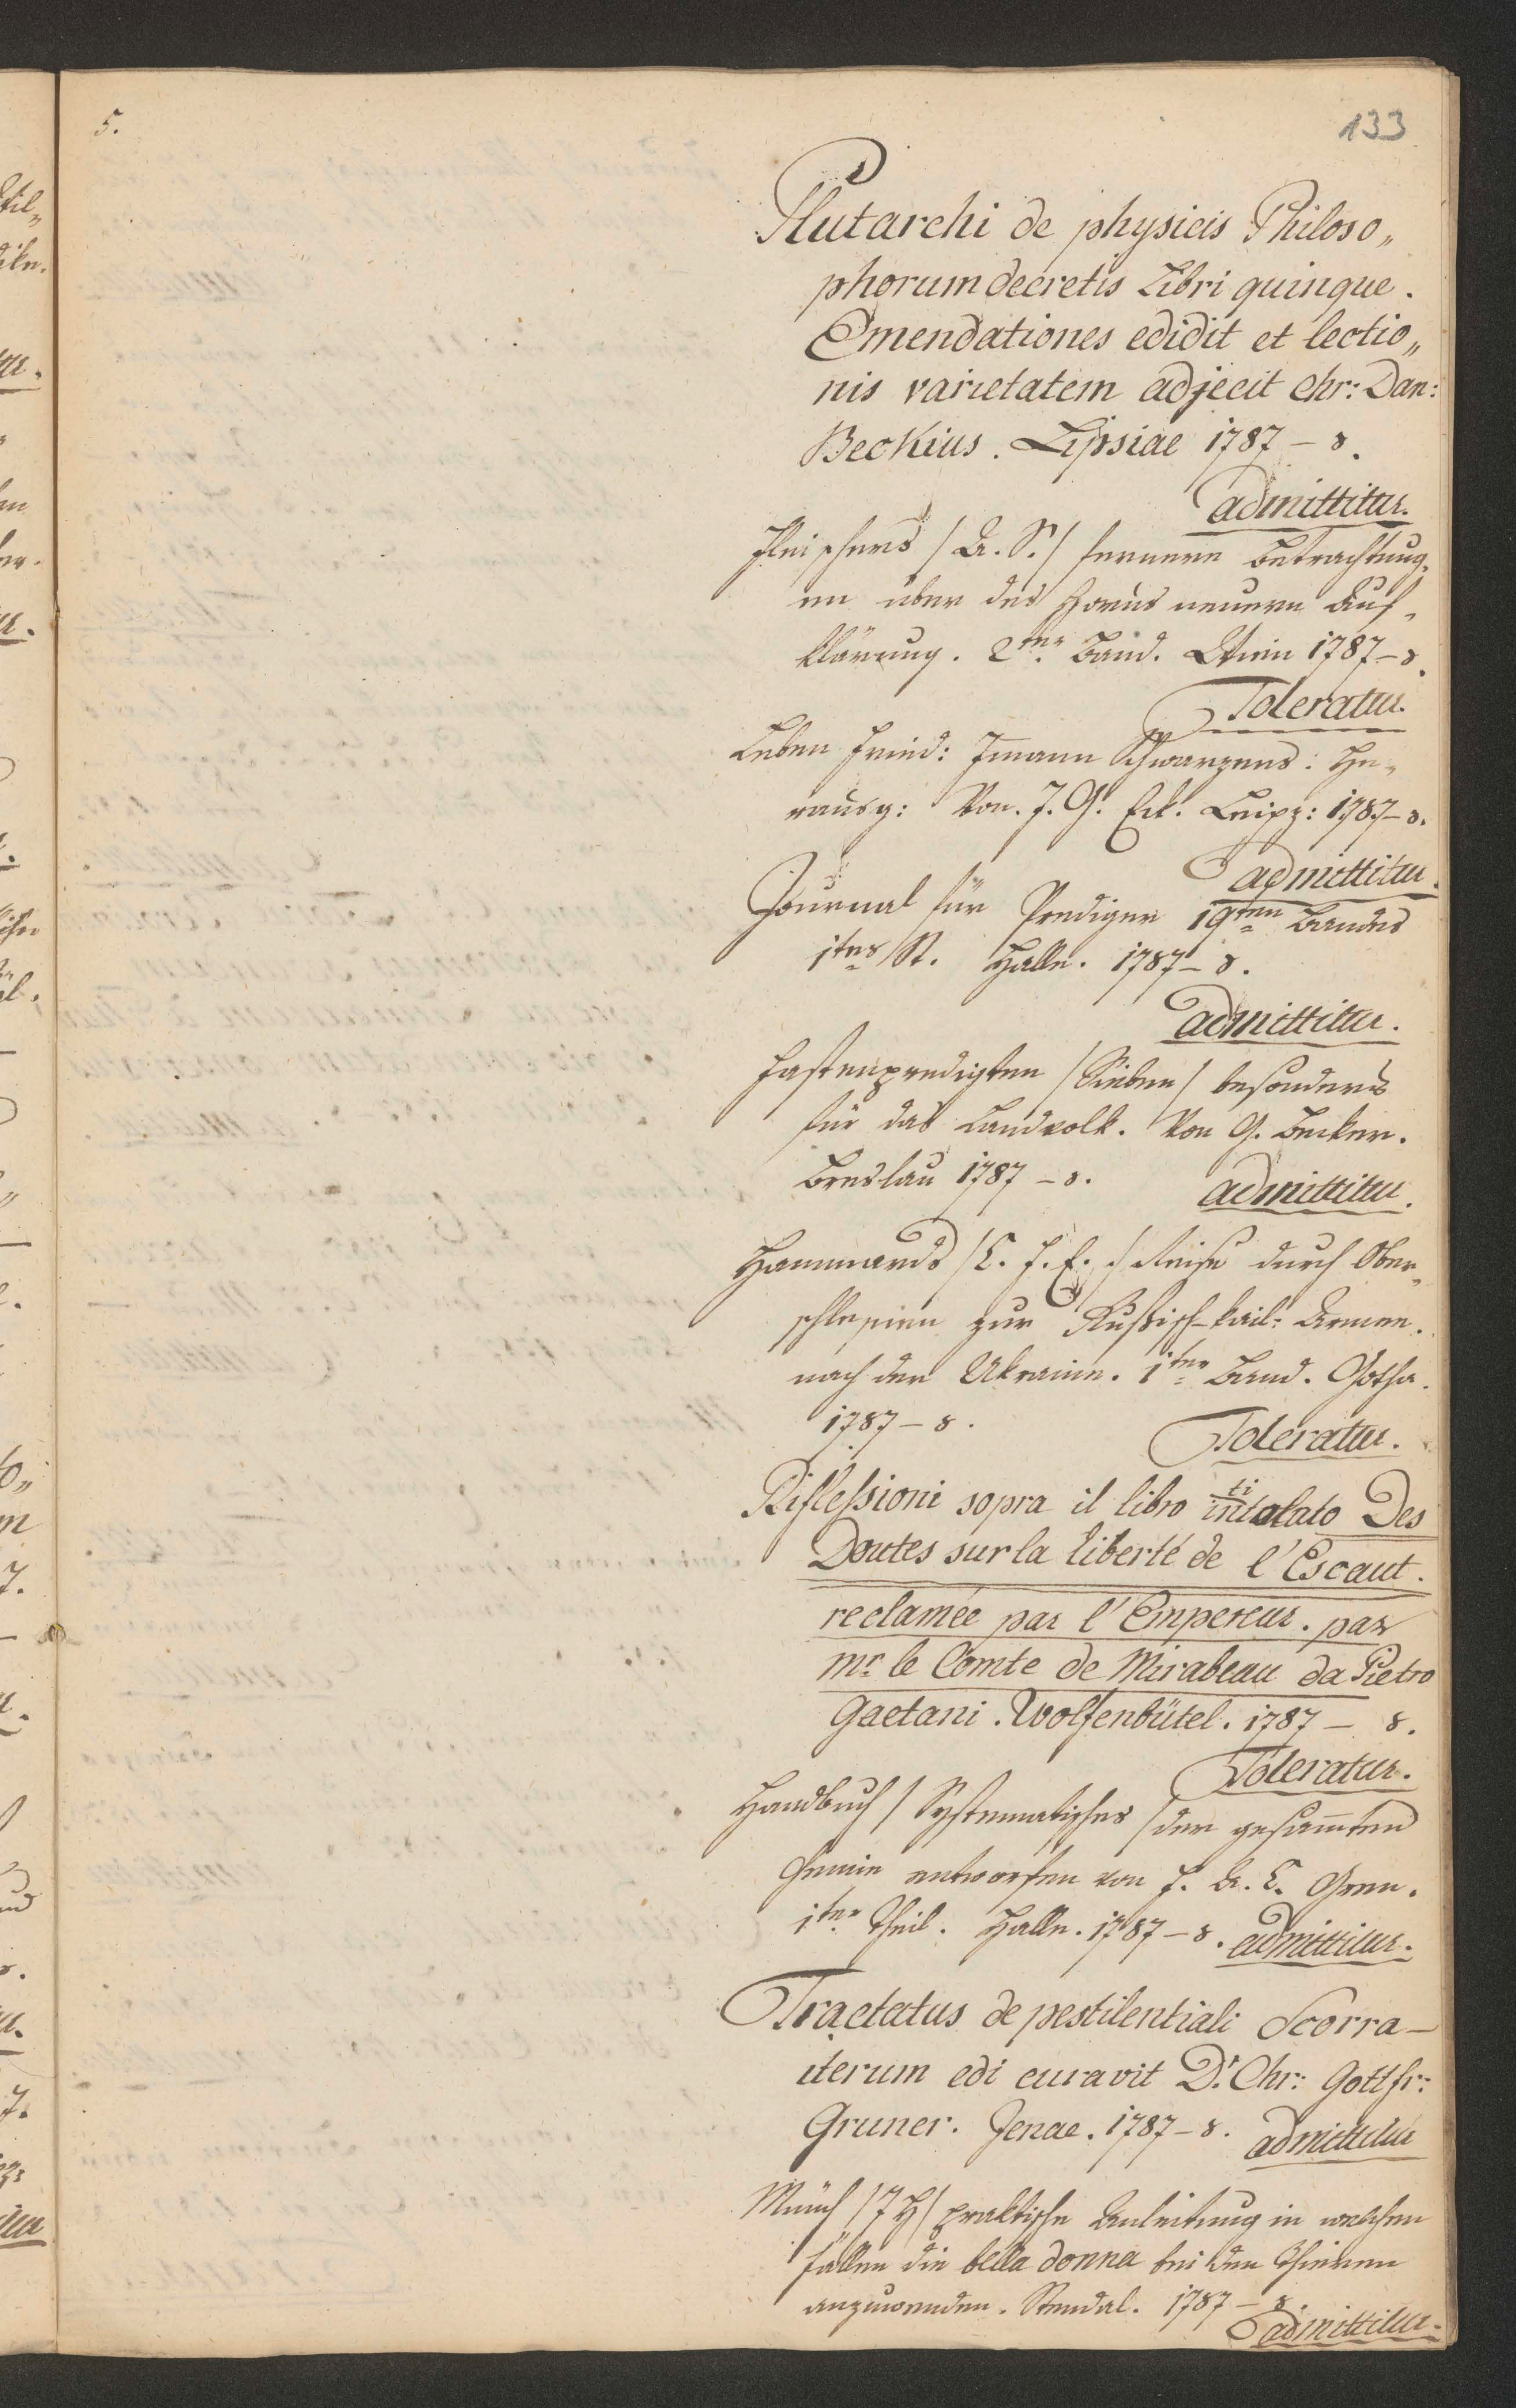 5.
133
Plutarchi de physicis Philoso„
phorum decretis Libri quinque.
Emendationes edidit et lectio„
nis varietatem adjecit Chr: Dan:
Beckius. Lipsiae 1787 – 8.
admittitur.
Fleischers / A. S. / fernere Betrachtung„
en über des Horus neuere Auf„
klärung. 2ter Band. Wien 1787 – 8.
Toleratur.
Leben Fried: Imann Schwarzens: He„
rausg: Von. J. G. Eck. Leipz: 1787 – 8.
admittitur.
Journal für Prediger 19ten Bandes
1tes St. Halle. 1787 – 8.
admittitur.
Fastenpredigten / Sieben / besonders
für das Landvolk. Von G. Becker.
Breslau 1787 – 8.
admittitur.
Hammards / C. F. E. / Reise durch Ober„
schlesien zur Rußisch-kais: Armee.
nach der Ukraine. 1ter Band. Gotha.
1787 – 8.
Toleratur.
Riflessioni sopra il libro intitolato Des
Doutes sur la liberté de l'Escaut.
reclamée par l'Empereur. par
mr. le Comte de Mirabeau da Pietro
Gaetani. Wolfenbütel. 1787 – 8.
Toleratur.
Handbuch / Systematisches / der gesammten
Chemie entworfen von F. A. C. Gren.
1ter Theil. Halle. 1787 – 8. admittitur.
Tractatus de pestilentiali Scorra –
iterum edi curavit Dr. Chr: Gottfr:
Gruner. Jenae. 1787 – 8. admittitur
Münch / J H / praktische Anleitung in welchen
Fällen die bella donna bei den Thieren
anzuwenden. Stendal. 1787 – 8.
admittitur.